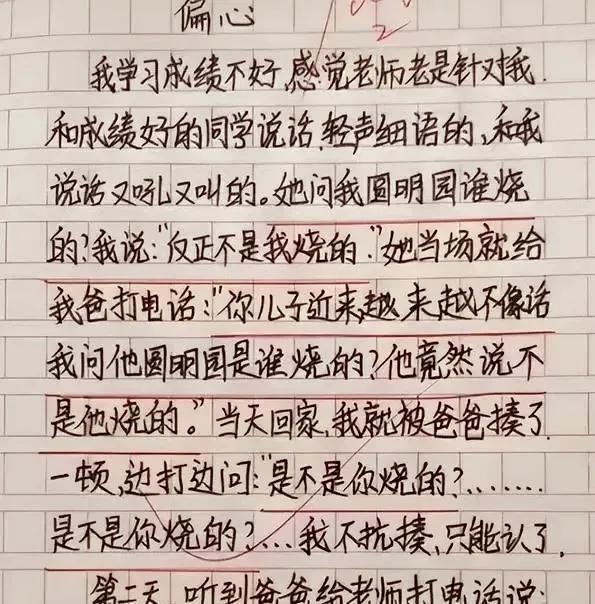 偏心
我学习成绩不好,感觉老师老是针对我.
和成绩好的同学说话,轻声细语的、和我
说话又吼又叫的。她问我圆明园谁烧
的?我说:"反正不是我烧的."她当场就给
我爸打电话:"你儿子近来,越来越不像话
我问他圆明园是谁烧的?他竟然说不
是他烧的。"当天回家,我就被爸爸揍了
一顿,边打边问:"是不是你烧的?.......
是不是你烧的?...我不抗揍,只能认了.
第二天,听到爸爸给老师打电话说: